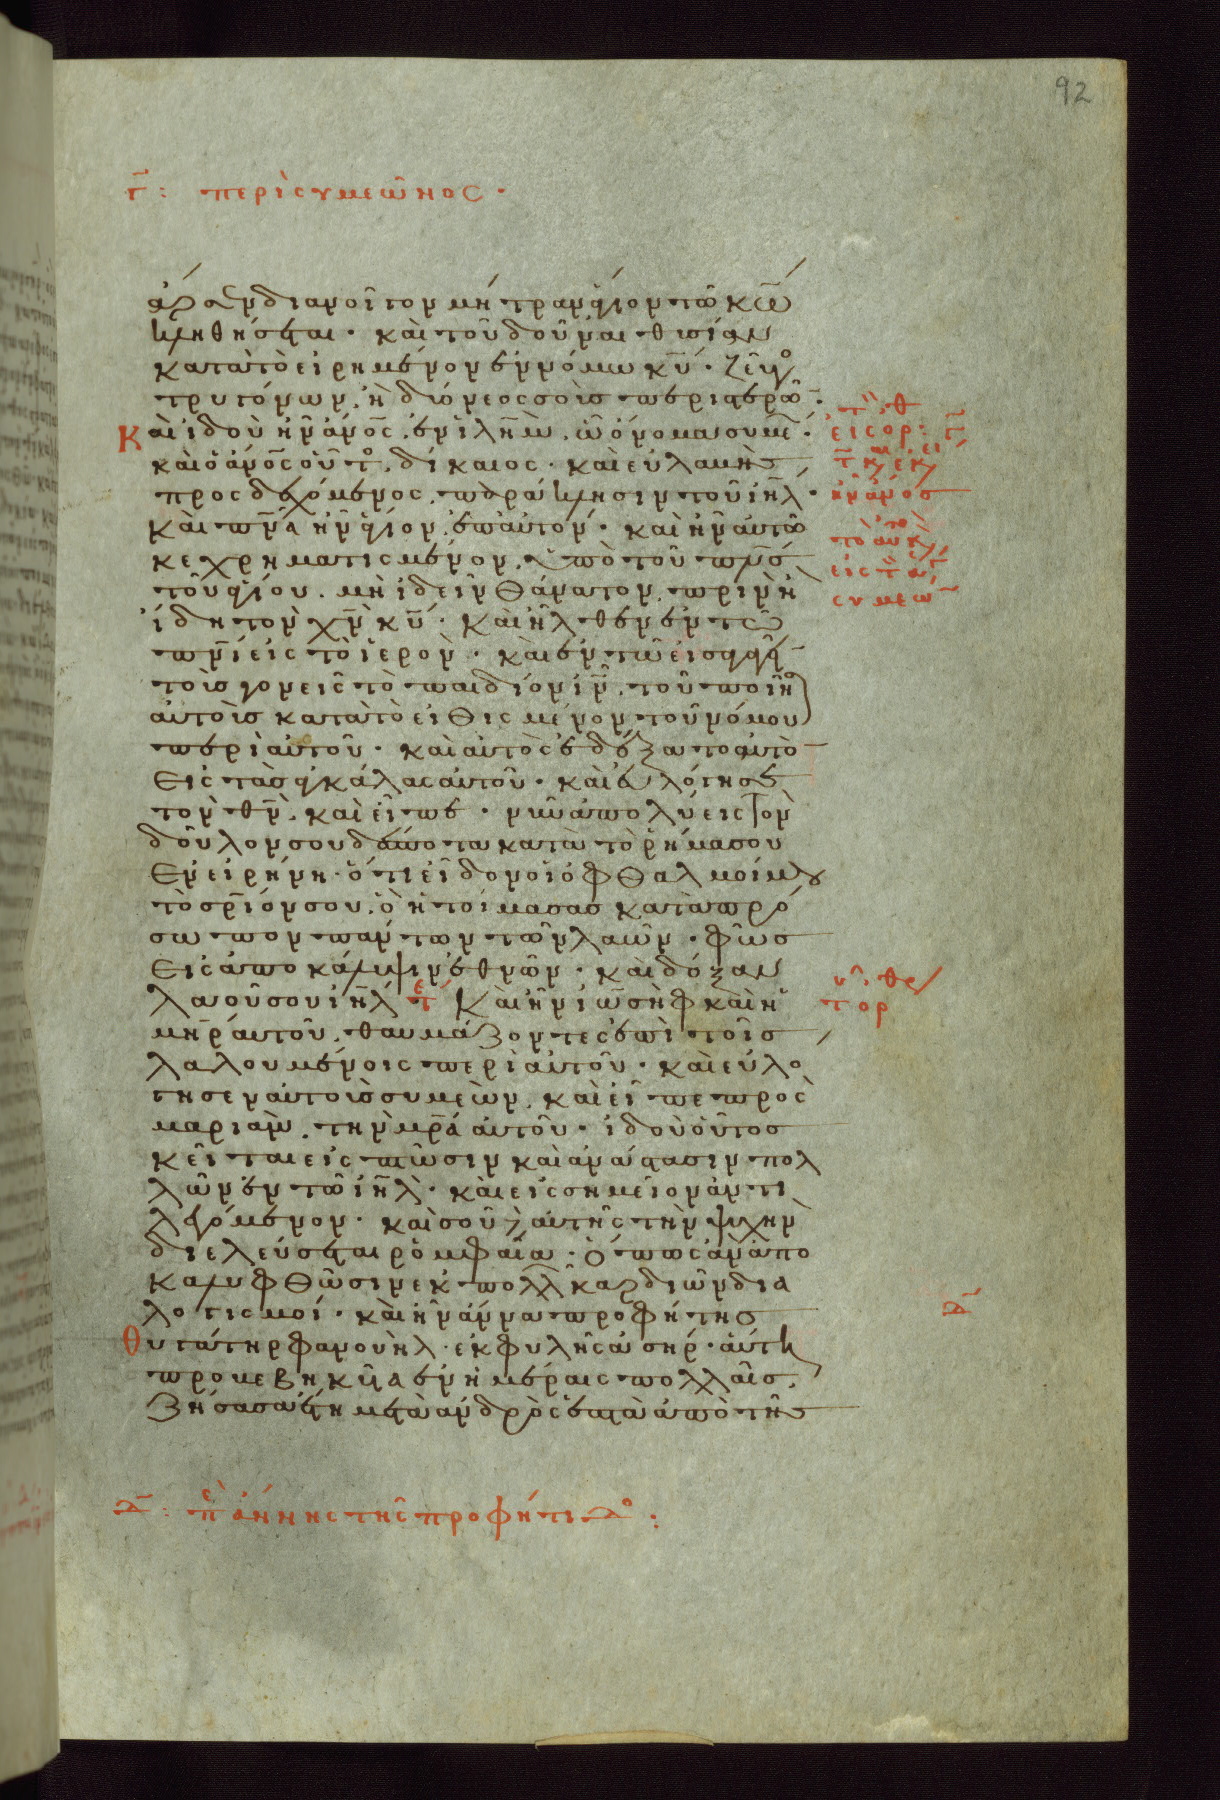 92
γ̅: περὶ συμεῶνος.
ἄρσεν διανοῖγον μήτραν ἅγιον τῶ κ̅ω̅
κληθήσεται. καὶ τοῦ δοῦναι θυσίαν
κατὰ τὸ εἰρημένον ἐν νόμω κ̅υ̅. ζεῦγος
τρυγόνων, ἢ δύο νεοσσοὺς περιστερῶν.
Καὶ ἰδοὺ ἦν ἄν̅ο̅ς, ἐν ἰλ̅η̅μ, ὧ ὄνομα συμε̅.
καὶ ὁ ἄν̅ο̅ς οὗτος, δίκαιος. καὶ εὐλαβὴς
προσδεχόμενος, παράκλησιν τοῦ ἰη̅λ.
καὶ πν̅α ἦν ἅγιον ἐπ' αὐτόν. καὶ ἦν αὐτῶ
κεχρηματισμένον, ὑπὸ τοῦ πν̅ς
τοῦ ἁγίου. μὴ ἰδεῖν θάνατον, πρινὴ
ἴδη τὸν χ̅ν̅ κ̅υ̅. Καὶ ἦλθεν ἐν τῶ
πν̅ι εἰς τὸ ἱερόν. καὶ ἐν τῶ εἰσαγαγεῖν
τοὺς γονεῖς τὸ παιδίον ἰ̅ν̅, τοῦ ποιῆσ
αὐτοὺς κατὰ τὸ εἰθισμένον τοῦ νόμου
περὶ αὐτοῦ. καὶ αὐτὸς ἐδέξατο αὐτὸ
Εἰς τὰς ἀγκάλας αὐτοῦ. καὶ εὐλόγησε
τὸν θ̅ν̅, καὶ εἶπε. νῦν ἀπολύεις τὸν
δοῦλον σου δέσποτα κατὰ τὸ ῥῆμα σου
Εν εἰρήνη. ὅτι εἶδον οἱ ὀφθαλμοί μου
τὸ σρ̅ιόν σου, ὃ ἡτοίμασας κατὰ πρό
σωπον πάντων τῶν λαῶν. φῶς
Εἰς ἀποκάλυψιν ἐθνῶν. καὶ δόξαν
λαοῦ σου ἰη̅λ Καὶ ἦν ἰωσὴφ καὶ ἡ
μη̅ρ αὐτοῦ, θαυμάζοντες ἐπὶ τοῖς
λαλουμένοις περὶ αὐτοῦ. καὶ εὐλό
γησεν αὐτοὺς συμεών, καὶ εἶπε πρὸς
μαριὰμ, τὴν μρ̅α αὐτοῦ. ἰδοὺ οὗτος
κεῖται εἰς πτῶσιν καὶ ἀνάστασιν πολ
λῶν ἐν τῶ ἰη̅λ. καὶ εἰς σημεῖον ἀντι
λεγόμενον. καὶ σοῦ δὲ αὐτῆς τὴν ψυχὴν
διελεύσεται ῥομφαία. ὅπως ἂν ἀπο
καλυφθῶσιν ἐκ πολλῶν καρδιῶν δια
λογισμοί. καὶ ἦν ἄννα προφῆτης
θυγάτηρ φανουὴλ. ἐκ φυλῆς ἀσήρ. αὕτη
προβεβηκυῖα ἐν ἡμέραις πολλαῖς,
Ζήσασα ἔτη μετὰ ἀνδρὸς ἑπτὰ ἀπὸ τῆς
δ̅
δ̅: πε ἄννης τῆς προφήτιδο: